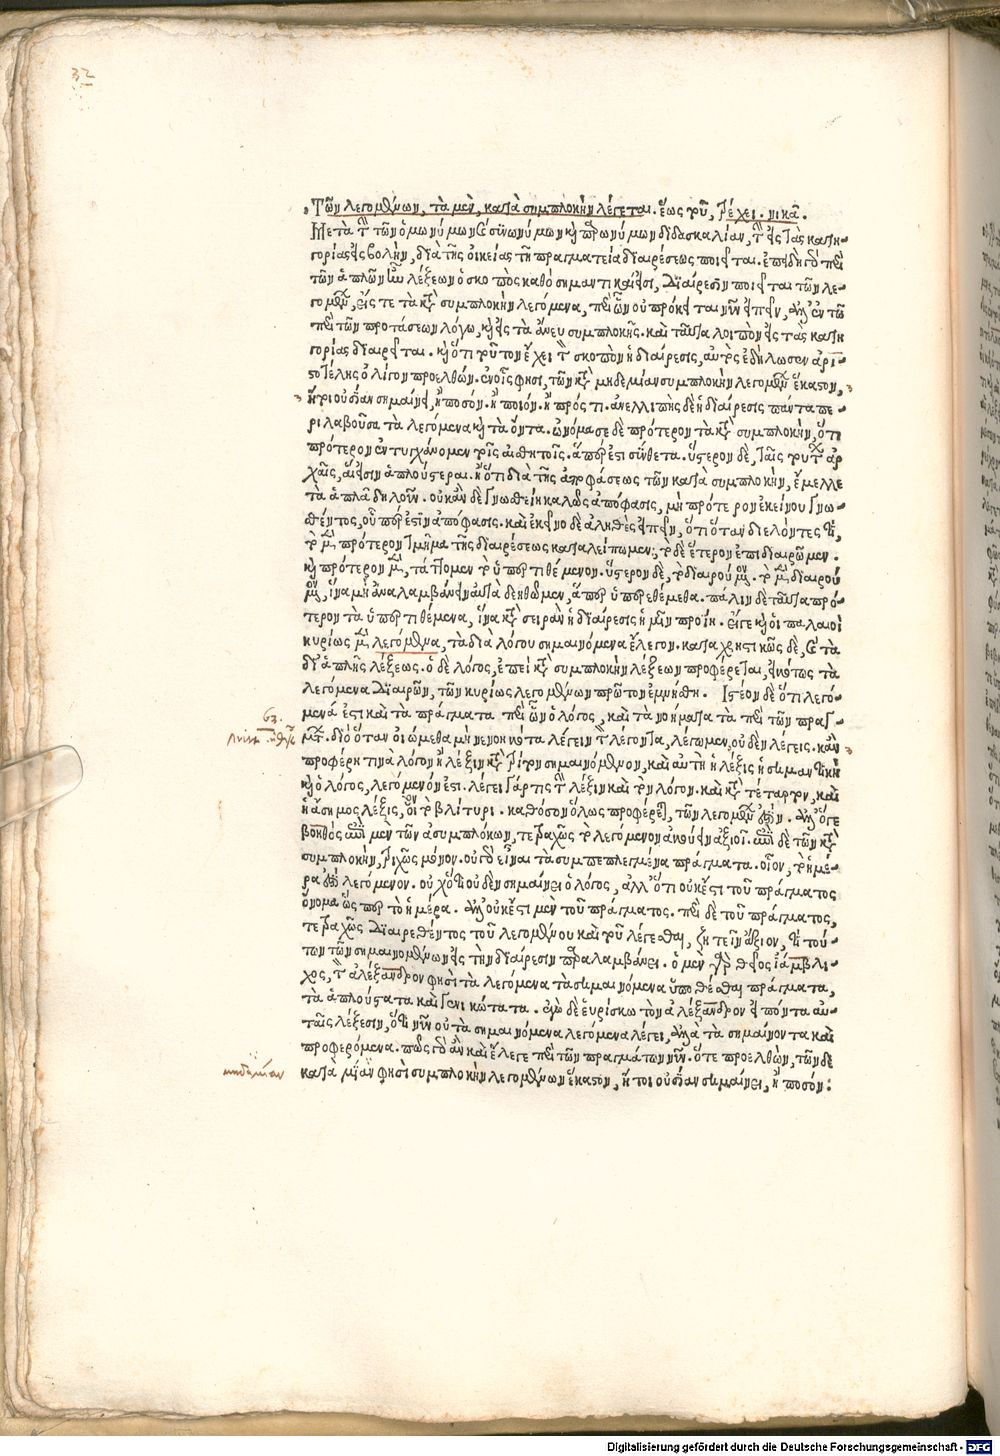 32
Τῶν λεγομένων, τὰ μὲν, κατὰ συμπλοκὴν λέγεται. ἕως τοῦ, τρέχει. νικᾶ.
Μετὰ τὴν τῶν ὁμωνύμων καὶ συνωνύμων καὶ παρωνύμων διδασκαλίαν, τὴν εἰς τὰς κατη-
γορίας εἰσβολὴν, διὰ τῆς οἰκείας τῇ πραγματείᾳ διαιρέσεως ποιεῖται. ἐπειδὴ γὰρ περὶ
τῶν ἁπλῶν ἦν λέξεων ὁ σκοπὸς καθὸ σημαντικαὶ εἰσι, διαίρεσιν ποιεῖται τῶν λε-
γομένων, εἴς τε τὰ κατὰ συμπλοκὴν λεγόμενα, περὶ ὧν οὐ πρόκειται νῦν εἰπεῖν, ἀλλ' ἐν τῷ
περὶ τῶν προτάσεων λόγῳ, καὶ εἰς τὰ ἄνευ συμπλοκῆς. καὶ ταῦτα λοιπὸν εἰς τὰς κατη
γορίας διαιρεῖται. καὶ ὅτι τοῦτον ἔχει τὸν σκοπὸν ἡ διαίρεσις, αὐτὸς ἐδήλωσεν ἀρι-
στοτέλης ὀλίγον προελθών. ἐν οἷς φησι, τῶν κατὰ μηδεμίαν συμπλοκὴν λεγομένων ἕκαστον,
ἤτοι οὐσίαν σημαίνει, ἢ ποσόν. ἢ ποιόν. ἢ πρός τι. ἀνελλιπὴς δὲ ἡ διαίρεσις πάντα πε-
ριλαβοῦσα τὰ λεγόμενα καὶ τὰ ὄντα. ὠνόμασε δὲ πρότερον τὰ κατὰ συμπλοκὴν, ὅτι
πρότερον ἐντυγχάνομεν τοῖς αἰσθητοῖς. ἅπερ ἐστὶ σύνθετα. ὕστερον δὲ, ταῖς τούτων ἀρ
χαῖς, αἵ εἰσιν ἁπλούστεραι. ἢ ὅτι διὰ τῆς ἀποφάσεως τῶν κατὰ συμπλοκὴν, ἔμελλε
τὰ ἁπλᾶ δηλοῦν. οὐκ ἂν δὲ γνωσθείη καλῶς ἀπόφασις, μὴ πρότερον ἐκείνου γνω-
σθέντος, οὗπέρ ἐστιν ἀπόφασις. καὶ ἐκεῖνο δὲ ἀληθὲς εἰπεῖν, ὅτι ὅταν διελόντες τι,
τὸ μὲν πρότερον τμῆμα τῆς διαιρέσεως καταλείπωμεν, τὸ δὲ ἕτερον ἐπιδιαιρῶμεν.
καὶ πρότερον μὲν, τάττομεν τὸ ὑπερτιθέμενον. ὕστερον δὲ, τὸ διαιρούμενον. τὸ μὲν διαιρού
μενον, ἵνα μὴ ἀναλαμβάνειν αὐτὰ δεηθῶμεν, ἅπερ ὑπερεθέμεθα. πάλιν δὲ ταῦτα πρό-
τερον τὰ ὑπερτιθέμενα, ἵνα κατὰ σειρὰν ἡ διαίρεσις ἡμῖν προΐη. εἴγε καὶ οἱ παλαιοὶ
κυρίως μὲν λεγόμενα, τὰ διὰ λόγου σημαινόμενα ἔλεγον. καταχρηστικῶς δὲ, καὶ τὰ
δι' ἁπλῆς λέξεως. ὁ δὲ λόγος, ἐπεὶ κατὰ συμπλοκὴν λέξεων προφέρεται, εἰκότως τὰ
λεγόμενα διαιρῶν, τῶν κυρίως λεγομένων πρῶτον ἐμνήσθη. Ἰστέον δὲ ὅτι λεγό-
μενά ἐστι καὶ τὰ πράγματα περὶ ὧν ὁ λόγος, καὶ τὰ νοήματα τὰ περὶ τῶν πραγ-
μάτων. διὸ ὅταν οἰώμεθα μὴ νενοηκότα λέγειν τὸν λέγοντα, λέγωμεν, οὐδὲν λέγεις. κἂν
προφέρῃ τινὰ λόγον ἢ λέξιν κατὰ τρίτον σημαινόμενον, καὶ αὐτὴ ἡ λέξις ἡ σημαντικὴ
καὶ ὁ λόγος, λεγόμενόν ἐστι. λέγει γάρ τις τὴν λέξιν καὶ τὸν λόγον. καὶ κατὰ τέταρτον, καὶ
ἡ ἄσημος λέξις, οἷον τὸ βλίτυρι. καθόσον ὅλως προφέρεται, τῶν λεγομένων ἐστίν. ἀλλ' ὅγε
βοηθὸς ἐπὶ μὲν τῶν ἀσυμπλόκων, τετραχῶς τὸ λεγόμενον ἀκούειν ἀξιοῖ. ἐπὶ δὲ τῶν κατὰ
συμπλοκὴν, τριχῶς μόνον. οὐ γὰρ εἶναι τὰ συμπεπλεγμένα πράγματα. οἷον, τὸ ἡμέ-
ρα ἐστὶ λεγόμενον. οὐχ ὅτι οὐδὲν σημαίνει ὁ λόγος, ἀλλ' ὅτι οὐκ ἔστι τοῦ πράγματος
ὄνομα ὥσπερ τὸ ἡμέρα. ἀλλ' οὐκ ἔστι μὲν τοῦ πράγματος. περὶ δὲ τοῦ πράγματος,
τετραχῶς διαιρεθέντος τοῦ λεγομένου καὶ τοῦ λέγεσθαι, ζητεῖν ἄξιον, τί τού-
των τῶν σημαινομένων εἰς τὴν διαίρεσιν παραλαμβάνει. ὁ μὲν γὰρ θεῖος ἰάμβλι-
χος, τὸν ἀλέξανδρον φησὶ τὰ λεγόμενα τὰ σημαινόμενα ὑποθέσθαι πράγματα,
τὰ ἁπλούστατα καὶ γενικώτατα. ἐγὼ δὲ εὑρίσκω τὸν ἀλέξανδρον εἰπόντα αὐ-
ταῖς λέξεσιν, ὅτι νῦν οὐ τὰ σημαινόμενα λεγόμενα λέγει, ἀλλὰ τὰ σημαίνοντα καὶ
προφερόμενα. πῶς γὰρ ἂν καὶ ἔλεγε περὶ τῶν πραγμάτων νῦν. ὅτε προελθὼν, τῶν δὲ
κατὰ μίαν φησὶ συμπλοκὴν λεγομένων ἕκαστον, ἤτοι οὐσίαν σημαίνει, ἢ ποσόν:
μηδεμίαν
Digitalisierung gefördert durch die Deutsche Forschungsgemeinschaft - DFG